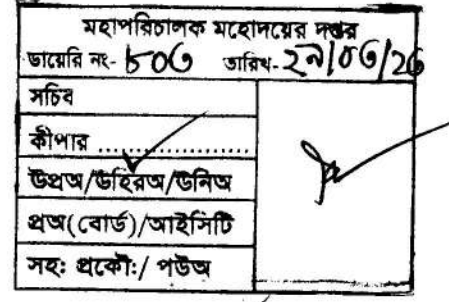 মহাপরিচালক মহোদয়ের দপ্তর
ডায়েরি নং- ৮০৩ তারিখ- ২৯/০৩/২৩
সচিব
কীপার ....................
উপ্রঅ/উহিরঅ/উনিঅ
প্রঅ(বোর্ড)/আইসিটি
সহ: প্রকৌ:/ পউঅ